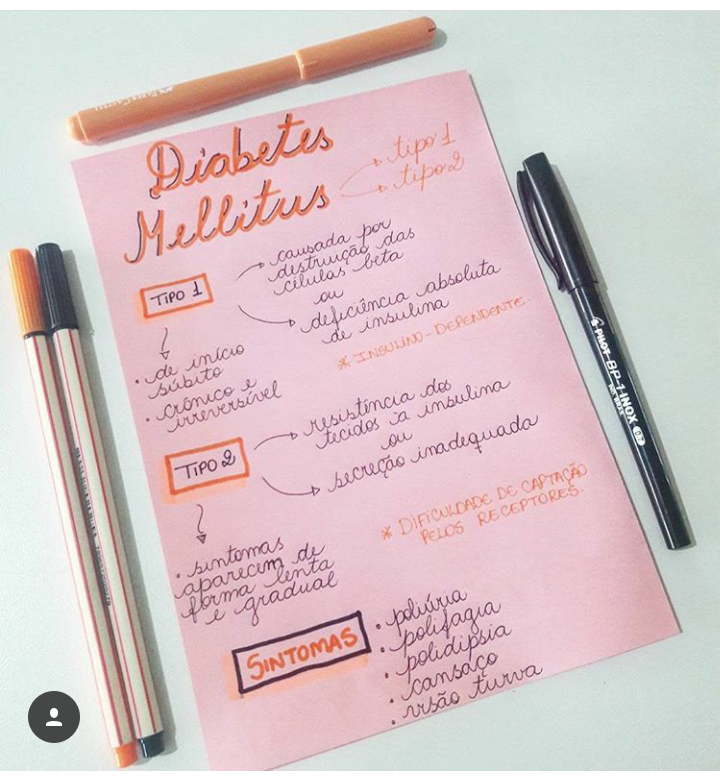 Diabetes
Mellitus
tipo 1
tipo 2
TIPO 1
causada por
destruição das
células beta
ou
deficiência absoluta
de insulina
* INSULINO-DEPENDENTE.
• de início
súbito
• crônico e
irreversível
TIPO 2
resistência dos
tecidos à insulina
ou
secreção inadequada
* DIFICULDADE DE CAPTAÇÃO
PELOS RECEPTORES.
• sintomas
aparecem de
forma lenta
e gradual
SINTOMAS
• poliúria
• polifagia
• polidipsia
• cansaço
• visão turva
PILOT BP-1-INOX